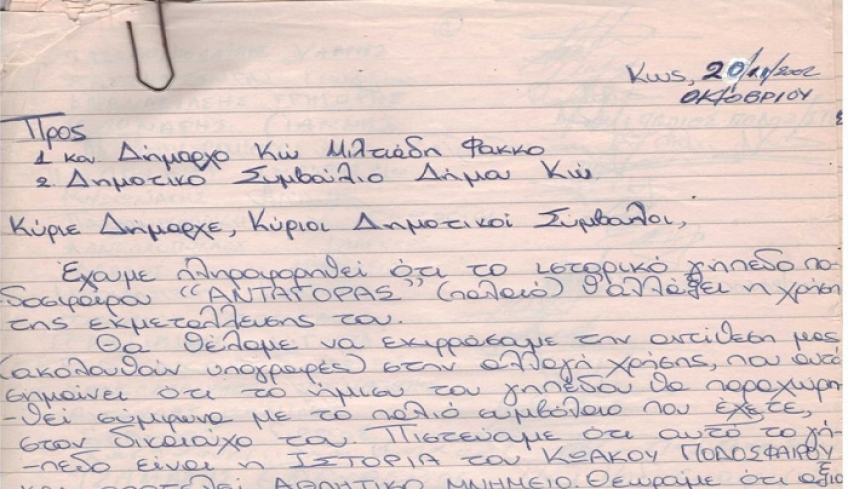 Κως, 20/10/2002
ΟΚΤΩΒΡΙΟΥ
Προς
1. κον Δήμαρχο Κω Μιλτιάδη Φάκκο
2. Δημοτικό Συμβούλιο Δήμου Κω.
Κύριε Δήμαρχε, Κύριοι Δημοτικοί Σύμβουλοι,
Έχουμε πληροφορηθεί ότι το ιστορικό γήπεδο πο-
δοσφαίρου "ΑΝΤΑΓΟΡΑΣ" (παλαιό) θ' αλλάξει η χρήση
της εκμετάλλευσης του.
Θα θέλαμε να εκφράσαμε την αντίθεση μας
(ακολουθούν υπογραφές) στην αλλαγή χρήσης, που αυτό
σημαίνει ότι το ήμισυ του γηπέδου θα παραχωρη-
-θεί σύμφωνα με το παλιό συμβόλαιο που έχετε,
στον δικαιούχο του. Πιστεύαμε ότι αυτό το γή-
-πεδο είναι η ΙΣΤΟΡΙΑ του ΚΩΑΚΟΥ ΠΟΔΟΣΦΑΙΡΟΥ
και αποτελεί ΑΘΛΗΤΙΚΟ ΜΝΗΜΕΙΟ. Θεωρούμε ότι αξίο